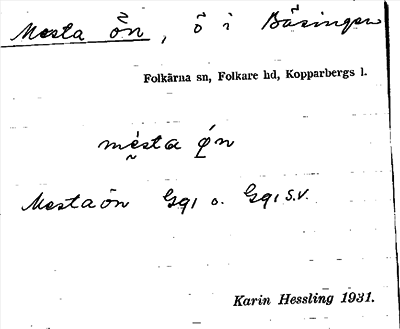 Mesta ön, ö i Bäsingen
Folkärna sn, Folkare hd, Kopparbergs l.
mesta øn
Mestaön Gq1 o. Gq1 S.V.
Karin Hessling 1931.